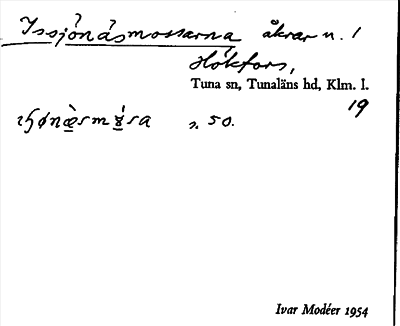 Issjönäsmossarna åkrar n. 1
Hökfors,
Tuna sn, Tunaläns hd, Klm. l.
19
s. 50.
Ivar Modéer 1954